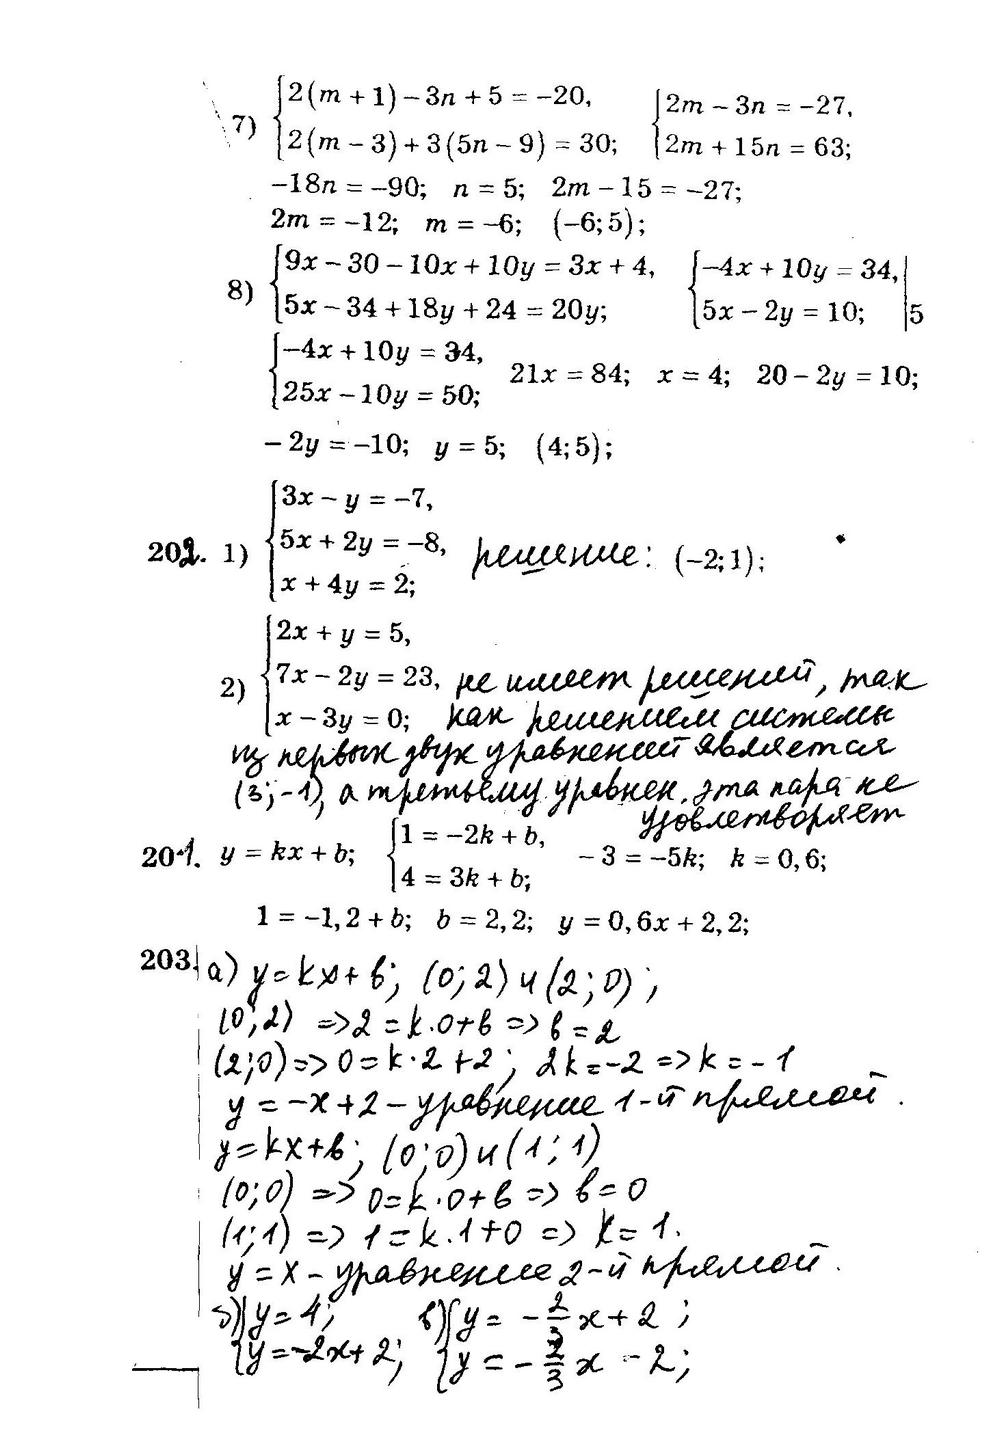 7) {2(m + 1) − 3n + 5 = −20, {2m − 3n = −27,
{2(m − 3) + 3(5n − 9) = 30; {2m + 15n = 63;
−18n = −90; n = 5; 2m − 15 = −27;
2m = −12; m = −6; (−6; 5);
8) {9x − 30 − 10x + 10y = 3x + 4, {−4x + 10y = 34,|
{5x − 34 + 18y + 24 = 20y; {5x − 2y = 10; |5
{−4x + 10y = 34,
{25x − 10y = 50; 21x = 84; x = 4; 20 − 2y = 10;
− 2y = −10; y = 5; (4; 5);
{3x − y = −7,
202. 1) {5x + 2y = −8, решение: (−2; 1);
{x + 4y = 2;
{2x + y = 5,
2) {7x − 2y = 23, не имеет решений, так
{x − 3y = 0; как решением системы
из первых двух уравнений является
(3; −1), а третьему уравнен. эта пара не
удовлетворяет
201. y = kx + b; {1 = −2k + b, − 3 = −5k; k = 0,6;
{4 = 3k + b;
1 = −1,2 + b; b = 2,2; y = 0,6x + 2,2;
203. а) y = kx + b; (0; 2) и (2; 0);
(0; 2) => 2 = k·0+b => b = 2
(2; 0) => 0 = k·2 + 2; 2k = −2 => k = −1
y = −x + 2 − уравнение 1-й прямой.
y = kx + b; (0; 0) и (1; 1)
(0; 0) => 0 = k·0 + b => b = 0
(1; 1) => 1 = k·1 + 0 => k = 1.
y = x − уравнение 2-й прямой.
б) {y = 4; в) {y = −2/3 x + 2;
{y = −2x + 2; {y = −2/3 x − 2;